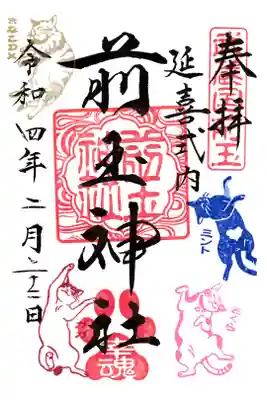 奉拝
延喜式内
前玉神社
令和四年二月二十二日
ミント
幸魂